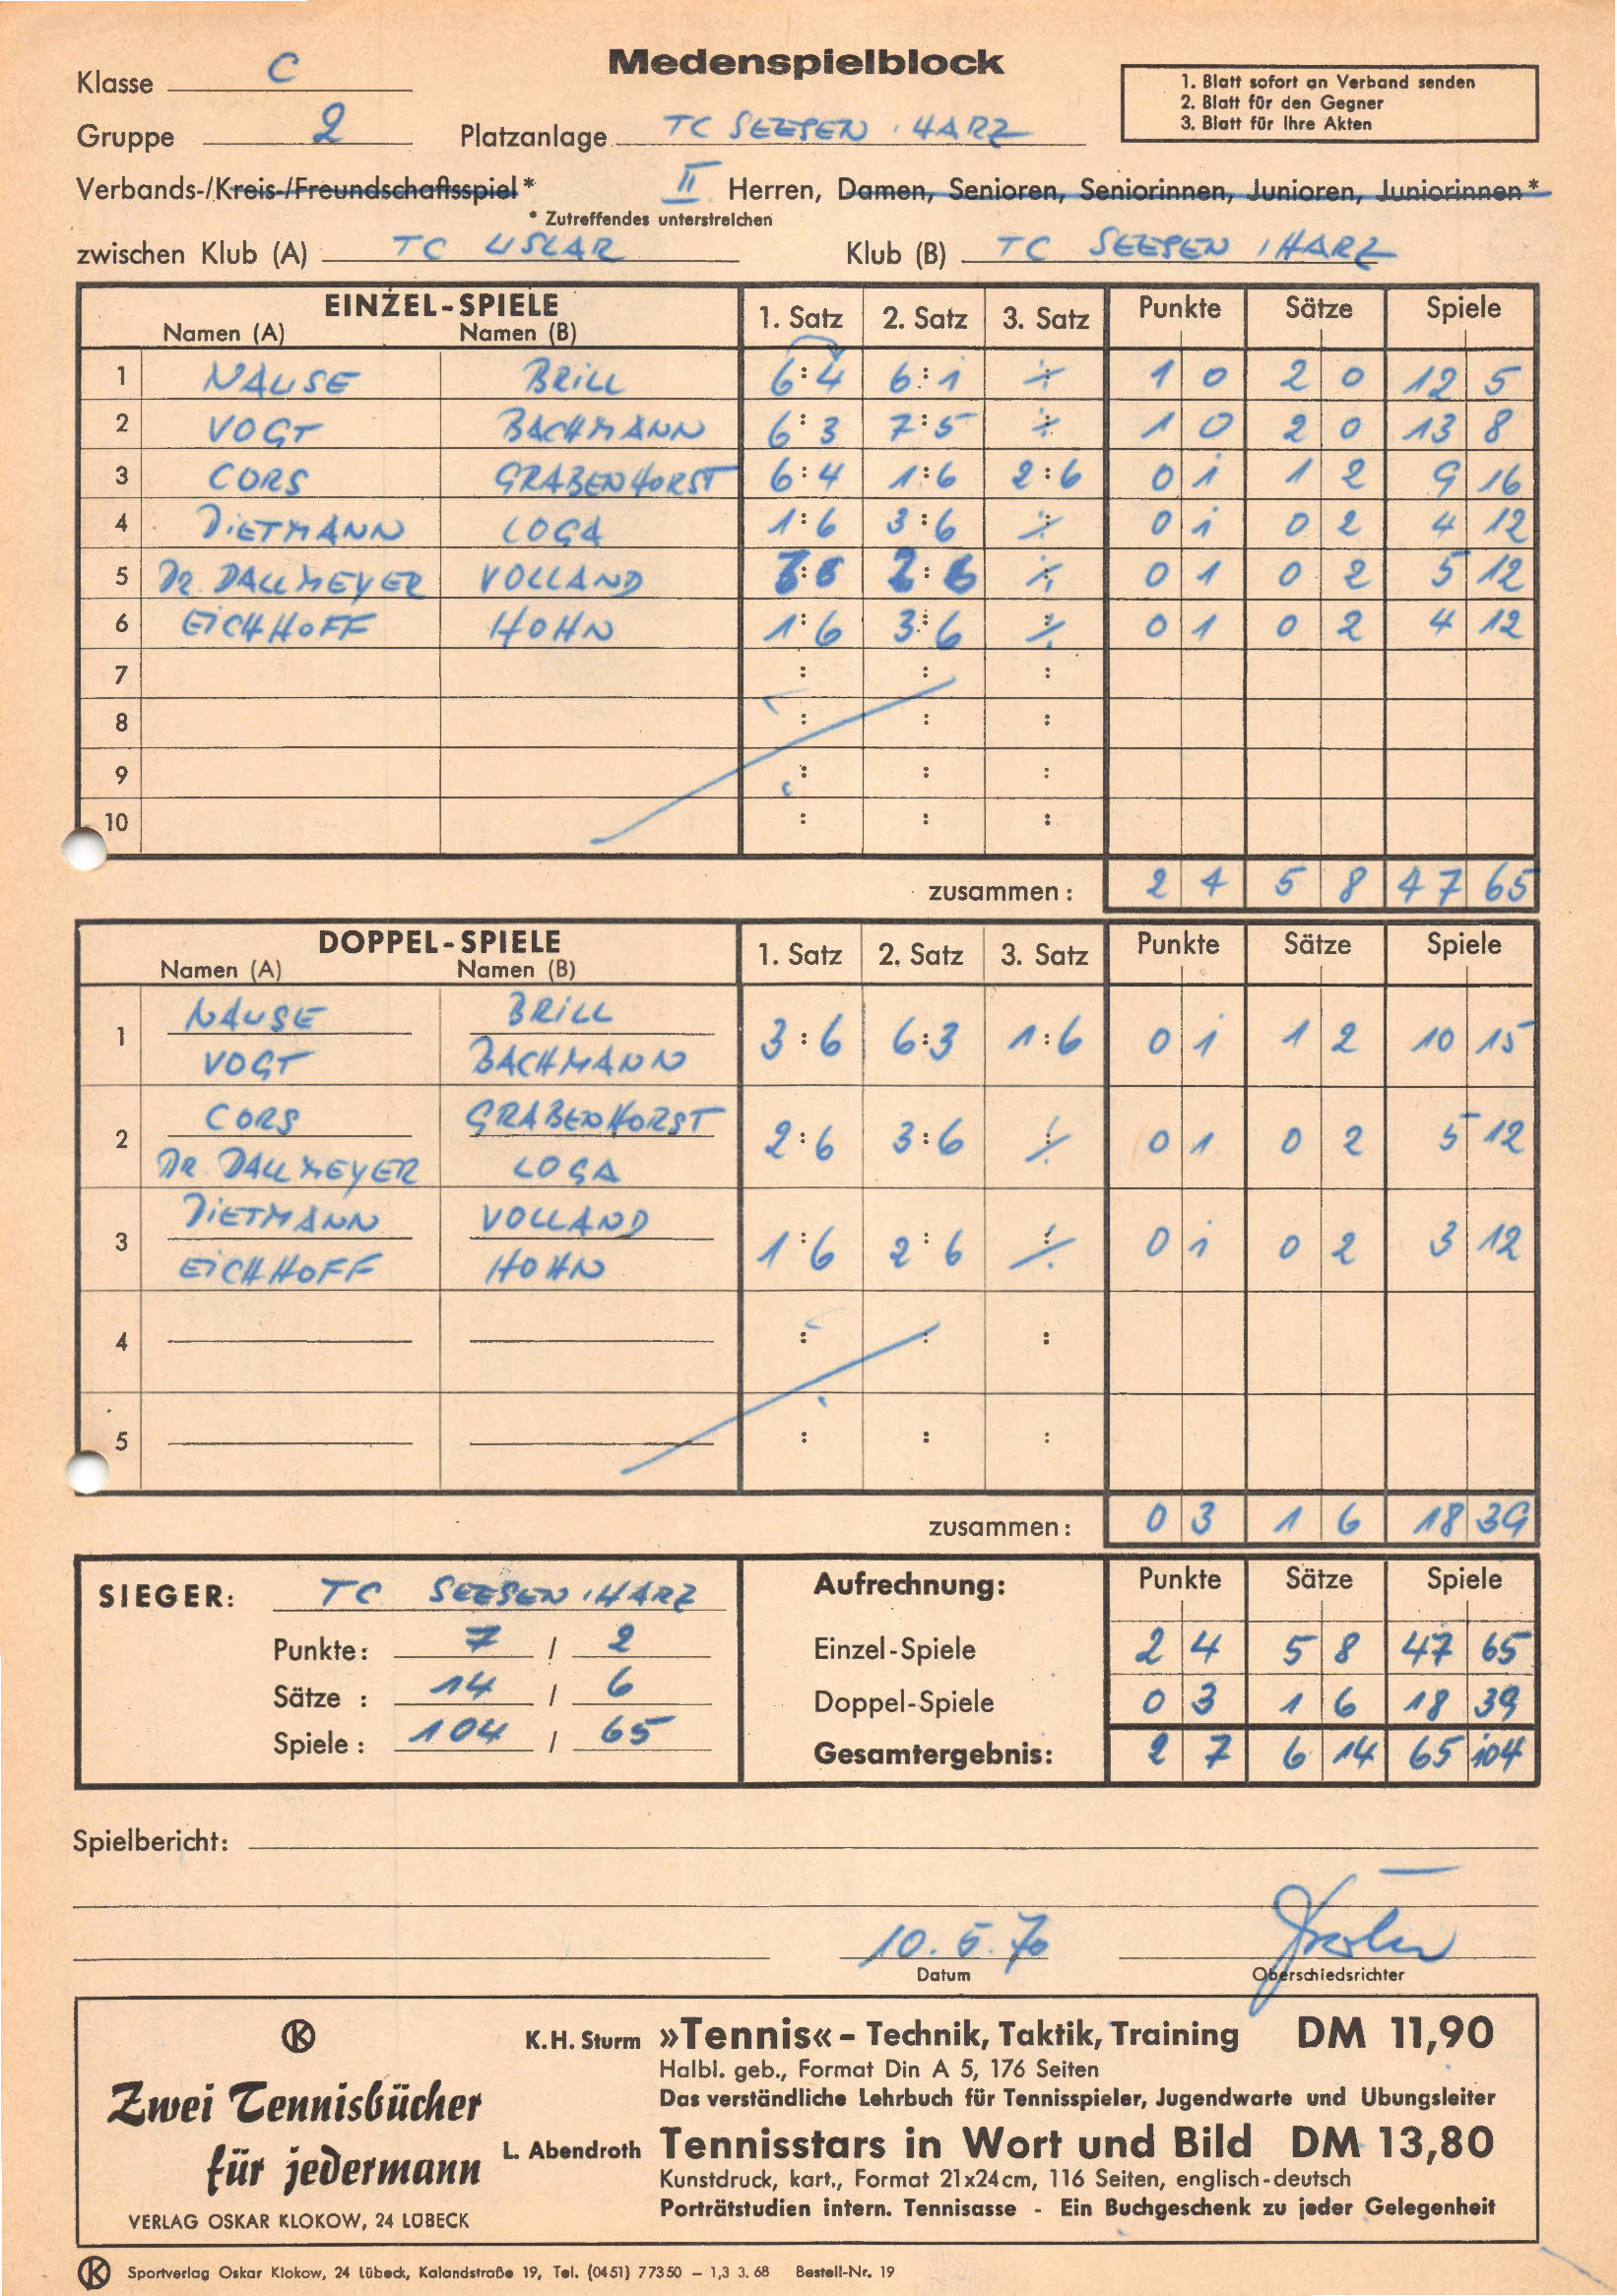 Medenspielblock
Klasse C
Gruppe 2 Platzanlage TC SEESEN / HARZ
1. Blatt sofort an Verband senden
2. Blatt für den Gegner
3. Blatt für Ihre Akten
Verbands-/Kreis-/Freundschaftsspiel* II Herren, Damen, Senioren, Seniorinnen, Junioren, Juniorinnen*
* Zutreffendes unterstreichen
zwischen Klub (A) TC USLAR Klub (B) TC SEESEN / HARZ
EINZEL-SPIELE 1. Satz 2. Satz 3. Satz Punkte Sätze Spiele
Namen (A) Namen (B)
1 NAUSE BRILL 6:4 6:1 ∕. 1 0 2 0 12 5
2 VOGT BACHMANN 6:3 7:5 ∕. 1 0 2 0 13 8
3 CORS GRABENHORST 6:4 1:6 2:6 0 1 1 2 9 16
4 DIETMANN LOGA 1:6 3:6 ∕. 0 1 0 2 4 12
5 DR. DALLMEYER VOLLAND 3:6 2:6 ∕. 0 1 0 2 5 12
6 EICHHOFF HOHN 1:6 3:6 ∕. 0 1 0 2 4 12
7 : : :
8 : : :
9 : : :
10 : : :
zusammen: 2 4 5 8 47 65
DOPPEL-SPIELE 1. Satz 2. Satz 3. Satz Punkte Sätze Spiele
Namen (A) Namen (B)
NAUSE BRILL
1 3:6 6:3 1:6 0 1 1 2 10 15
VOGT BACHMANN
CORS GRABENHORST
2 2:6 3:6 ∕. 0 1 0 2 5 12
DR. DALLMEYER LOGA
DIETMANN VOLLAND
3 1:6 2:6 ∕. 0 1 0 2 3 12
EICHHOFF HOHN
4 : : :
5 : : :
zusammen: 0 3 1 6 18 39
SIEGER: TC SEESEN / HARZ
Punkte: 7 / 2
Sätze : 14 / 6
Spiele : 104 / 65
Aufrechnung: Punkte Sätze Spiele
Einzel-Spiele 2 4 5 8 47 65
Doppel-Spiele 0 3 1 6 18 39
Gesamtergebnis: 2 7 6 14 65 104
Spielbericht:
10. 5. 70
Datum Oberschiedsrichter
K
Zwei Tennisbücher
für jedermann
VERLAG OSKAR KLOKOW, 24 LÜBECK
K. H. Sturm »Tennis« – Technik, Taktik, Training DM 11,90
Halbl. geb., Format Din A 5, 176 Seiten
Das verständliche Lehrbuch für Tennisspieler, Jugendwarte und Übungsleiter
L. Abendroth Tennisstars in Wort und Bild DM 13,80
Kunstdruck, kart., Format 21x24cm, 116 Seiten, englisch-deutsch
Porträtstudien intern. Tennisasse - Ein Buchgeschenk zu jeder Gelegenheit
K Sportverlag Oskar Klokow, 24 Lübeck, Kalandstraße 19, Tel. (0451) 77350 – 1,3 3. 68 Bestell-Nr. 19